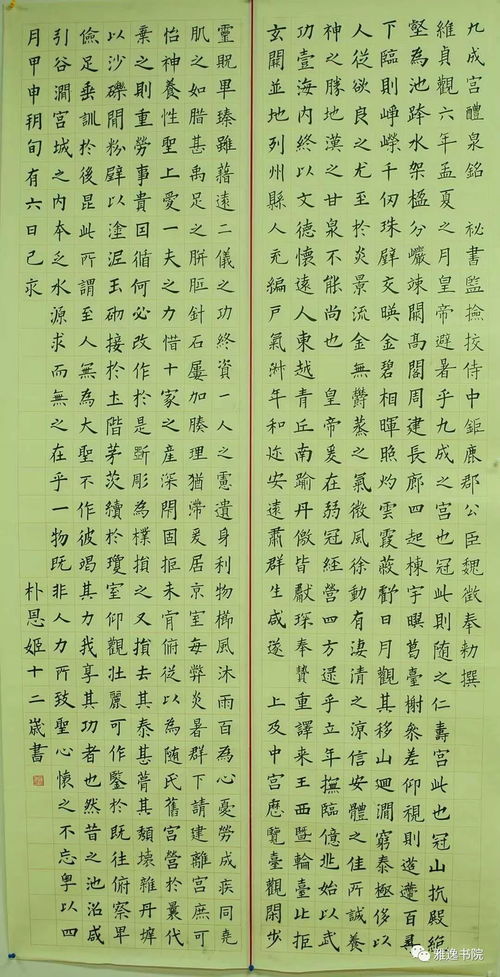 九成宮醴泉銘 祕書監撿挍侍中鉅鹿郡公臣魏徵奉勑撰
維貞觀六年孟夏之月皇帝避暑乎九成之宮也冠此則随之仁壽宮此也冠山抗殿絕
壑為池跨水架楹分巖竦闕高閣周建長廊四起棟宇膠葛臺榭參差仰視則迢遰百尋
下臨則崢嶸千仞珠璧交暎金碧相暉照灼雲霞蔽虧日月觀其移山迴澗窮泰極侈以
人從欲良之尤至於炎景流金無欝蒸之氣微風徐動有凄清之涼信安體之佳所誠養
神之勝地漢之甘泉不能尚也 皇帝爰在弱冠經營四方逮乎立年撫臨億兆始以武
功壹海內終以文德懷遠人東越青丘南踰丹徼皆獻琛奉贄重譯來王西暨輪臺北拒
玄闕並地列州縣人充編戶氣淋年和迩安遠肅群生咸遂 上及中宮歷覽臺觀閑步
靈貺畢臻雖藉遠二儀之功終資一人之慮遺身利物櫛風沐雨百為心憂勞成疾同堯
肌之如腊甚禹足之胼胝針石屢加腠理猶滯爰居京室每弊炎暑群下請建離宮庶可
怡神養性聖上愛一夫之力惜十家之產深閉固拒未肯俯從以為随氏舊宮營於曩代
棄之則重勞事貴因循何必改作於是斲彫為樸損之又損去其泰甚葺其頹壞雜丹墀
以沙礫間粉壁以塗泥玉砌接於土階茅茨續於瓊室仰觀壯麗可作鑒於既往俯察卑
儉足垂訓於後昆此所謂至人無為大聖不作彼竭其力我享其功者也然昔之池沼咸
引谷澗宮城之內本乏水源求而無之在乎一物既非人力所致聖心懷之不忘粵以四
月甲申朔旬有六日己求
朴恩姬十二歲書
雅逸书院